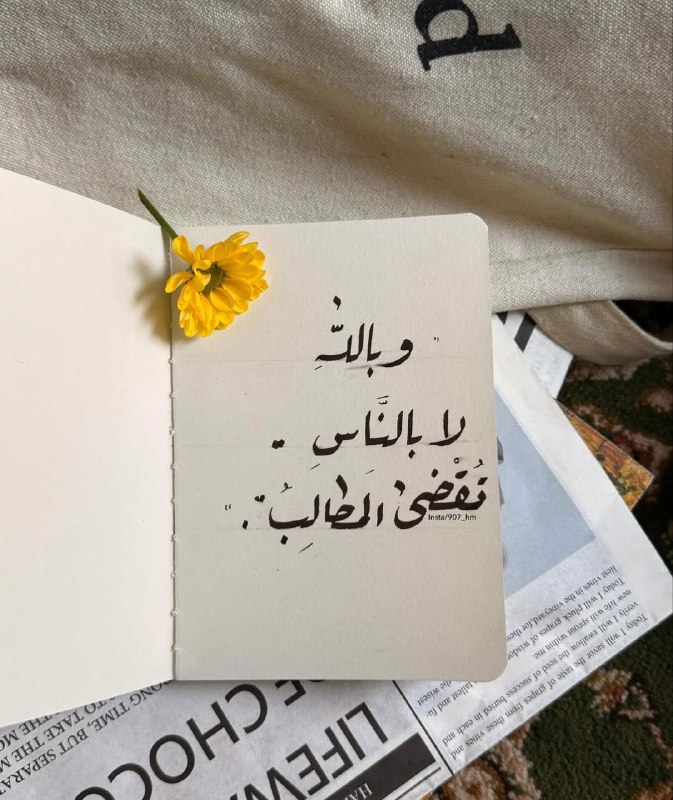 d
" وبِاللَّهِ
لا بالنَّاسِ ..
تُقْضىٰ المَطالِبُ .. "
Insta/907_hm
Today I will savor the taste of grapes from these vines and
verily I will swallow the seed of success buried in each and
new life will sprout within me.
Today I will pluck grapes of wisdom
liest vines in the vineyard for these
tallest and
wisest
LIFEW
E CHOCO
HA
ONG TIME, BUT SEPARAT
TO TAKE THE MO